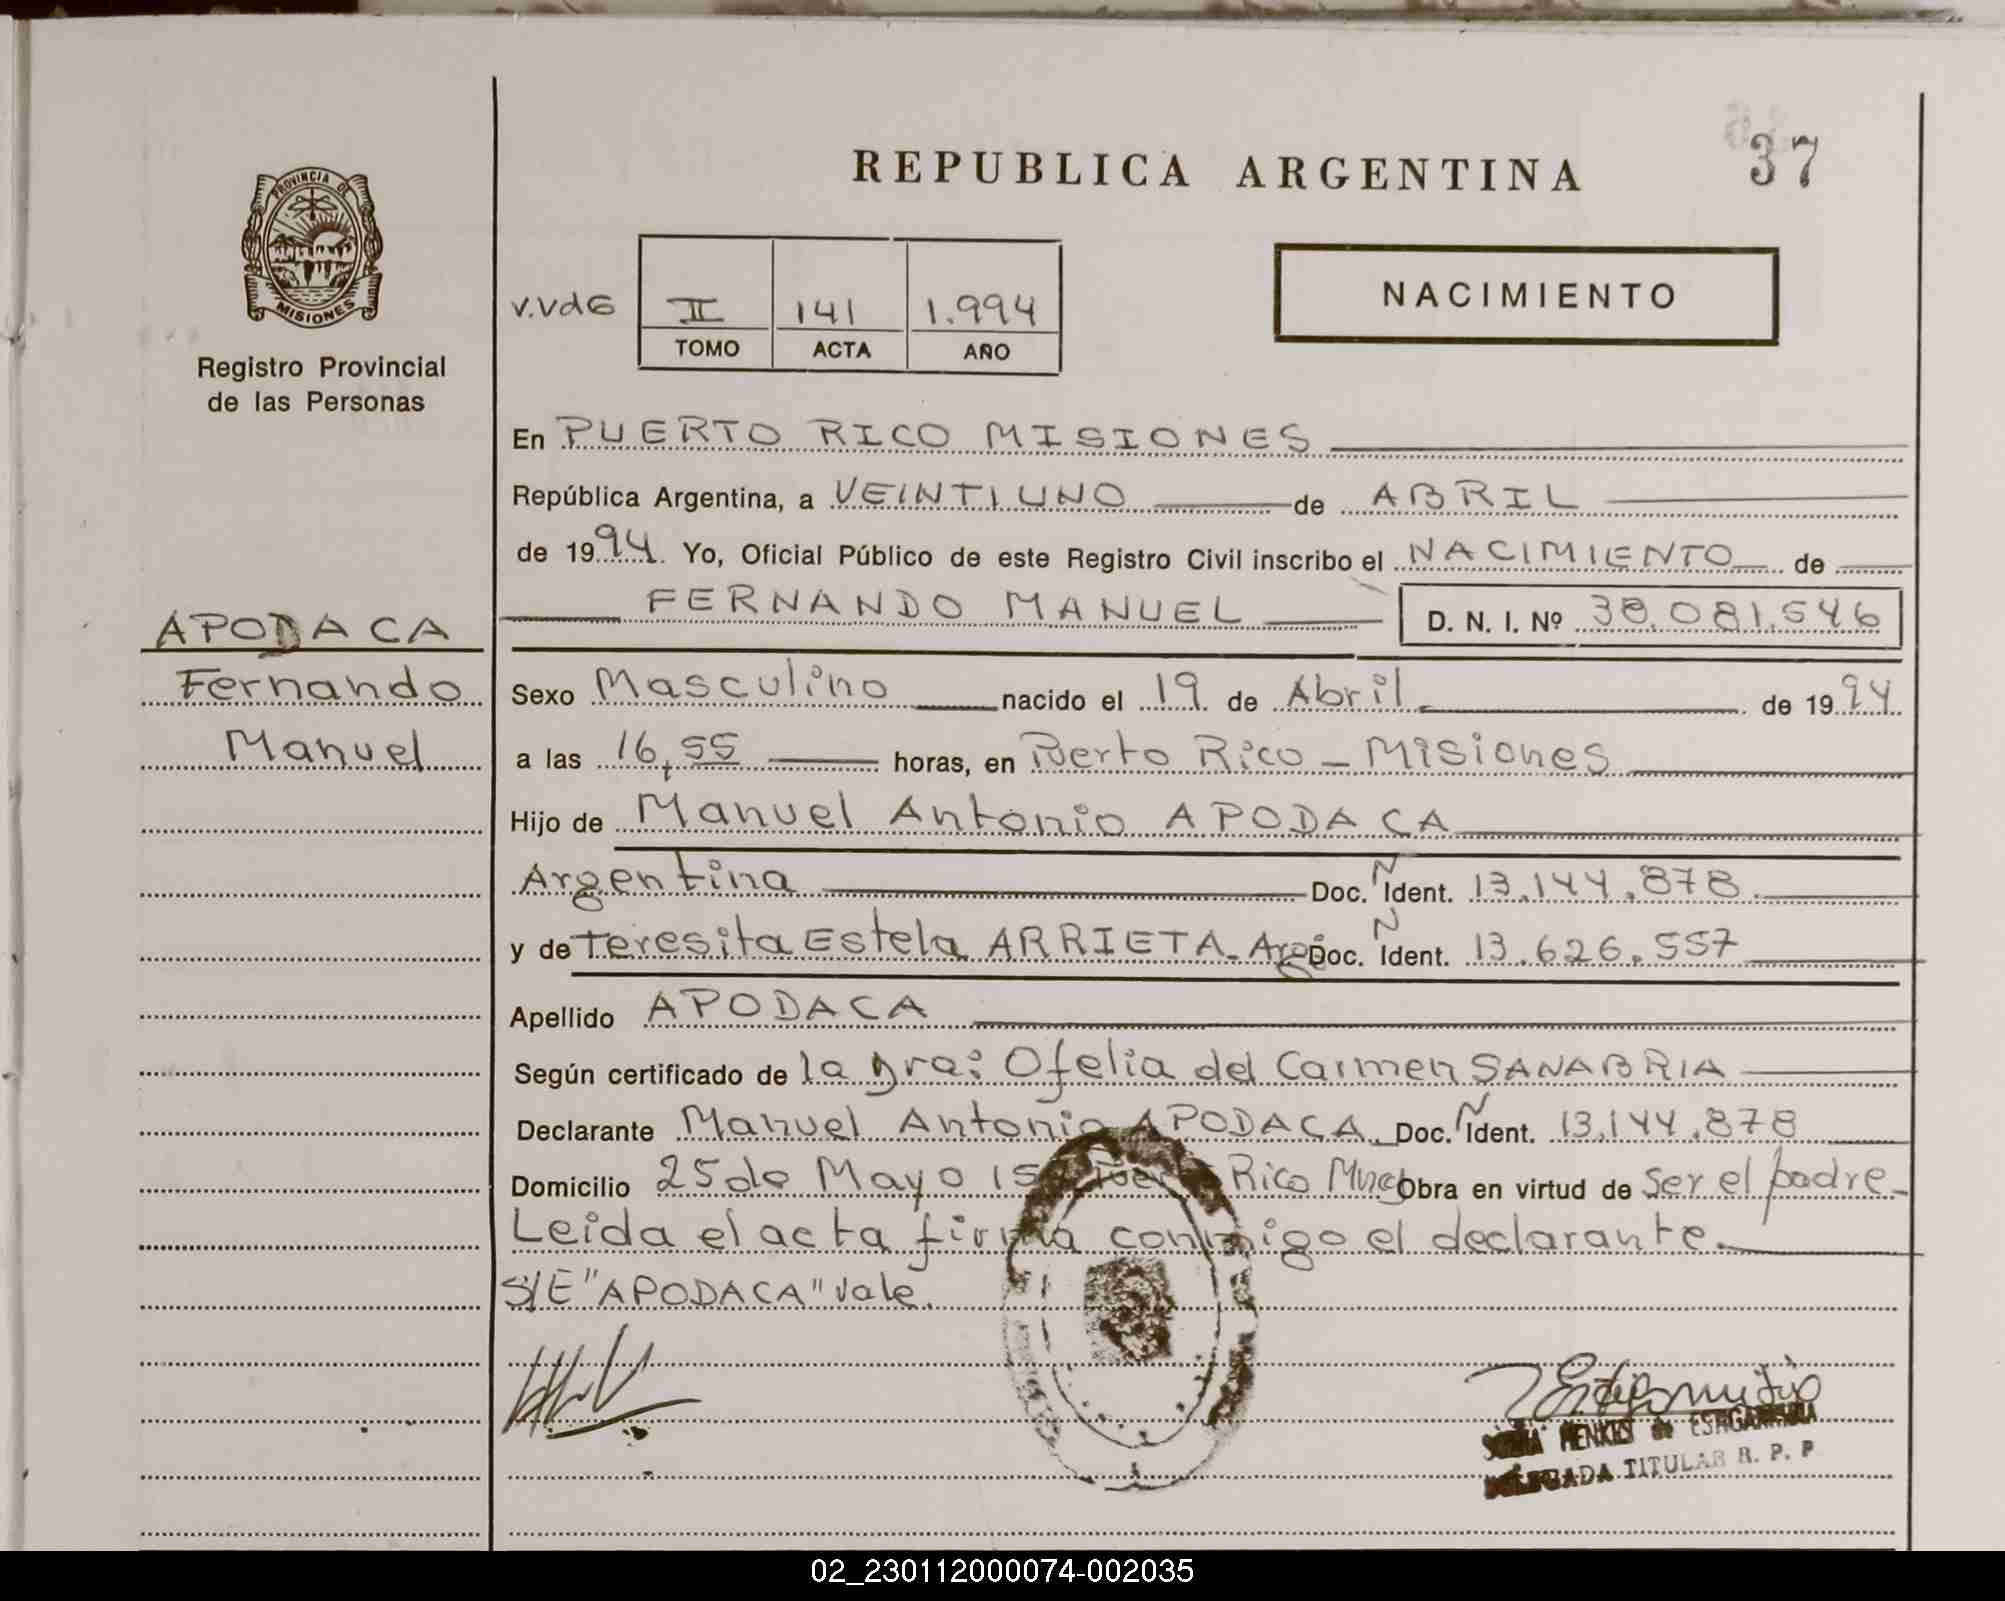 PROVINCIA DE
MISIONES
Registro Provincial
de las Personas
REPUBLICA ARGENTINA
37
V.VdG
II 141 1.994
TOMO ACTA AÑO
NACIMIENTO
En PUERTO RICO MISIONES
República Argentina, a VEINTIUNO de ABRIL
de 1994. Yo, Oficial Público de este Registro Civil inscribo el NACIMIENTO de
FERNANDO MANUEL D. N. I. Nº 38.081.546
APODACA
Fernando
Manuel
Sexo Masculino nacido el 19 de Abril de 1994
a las 16,55 horas, en Puerto Rico - Misiones
Hijo de Manuel Antonio APODACA
Argentina Doc. N Ident. 13.144.878
y de Teresita Estela ARRIETA. Arg. Doc. N Ident. 13.626.557
Apellido APODACA
Según certificado de la Dra: Ofelia del Carmen SANABRIA
Declarante Manuel Antonio APODACA. Doc. N Ident. 13.144.878
Domicilio 25 de Mayo Rico Obra en virtud de ser el padre-
Leida el acta firma conmigo el declarante.
S/E "APODACA" vale.
MENKES de
DELEGADA TITULAR R. P. P
02_230112000074-002035